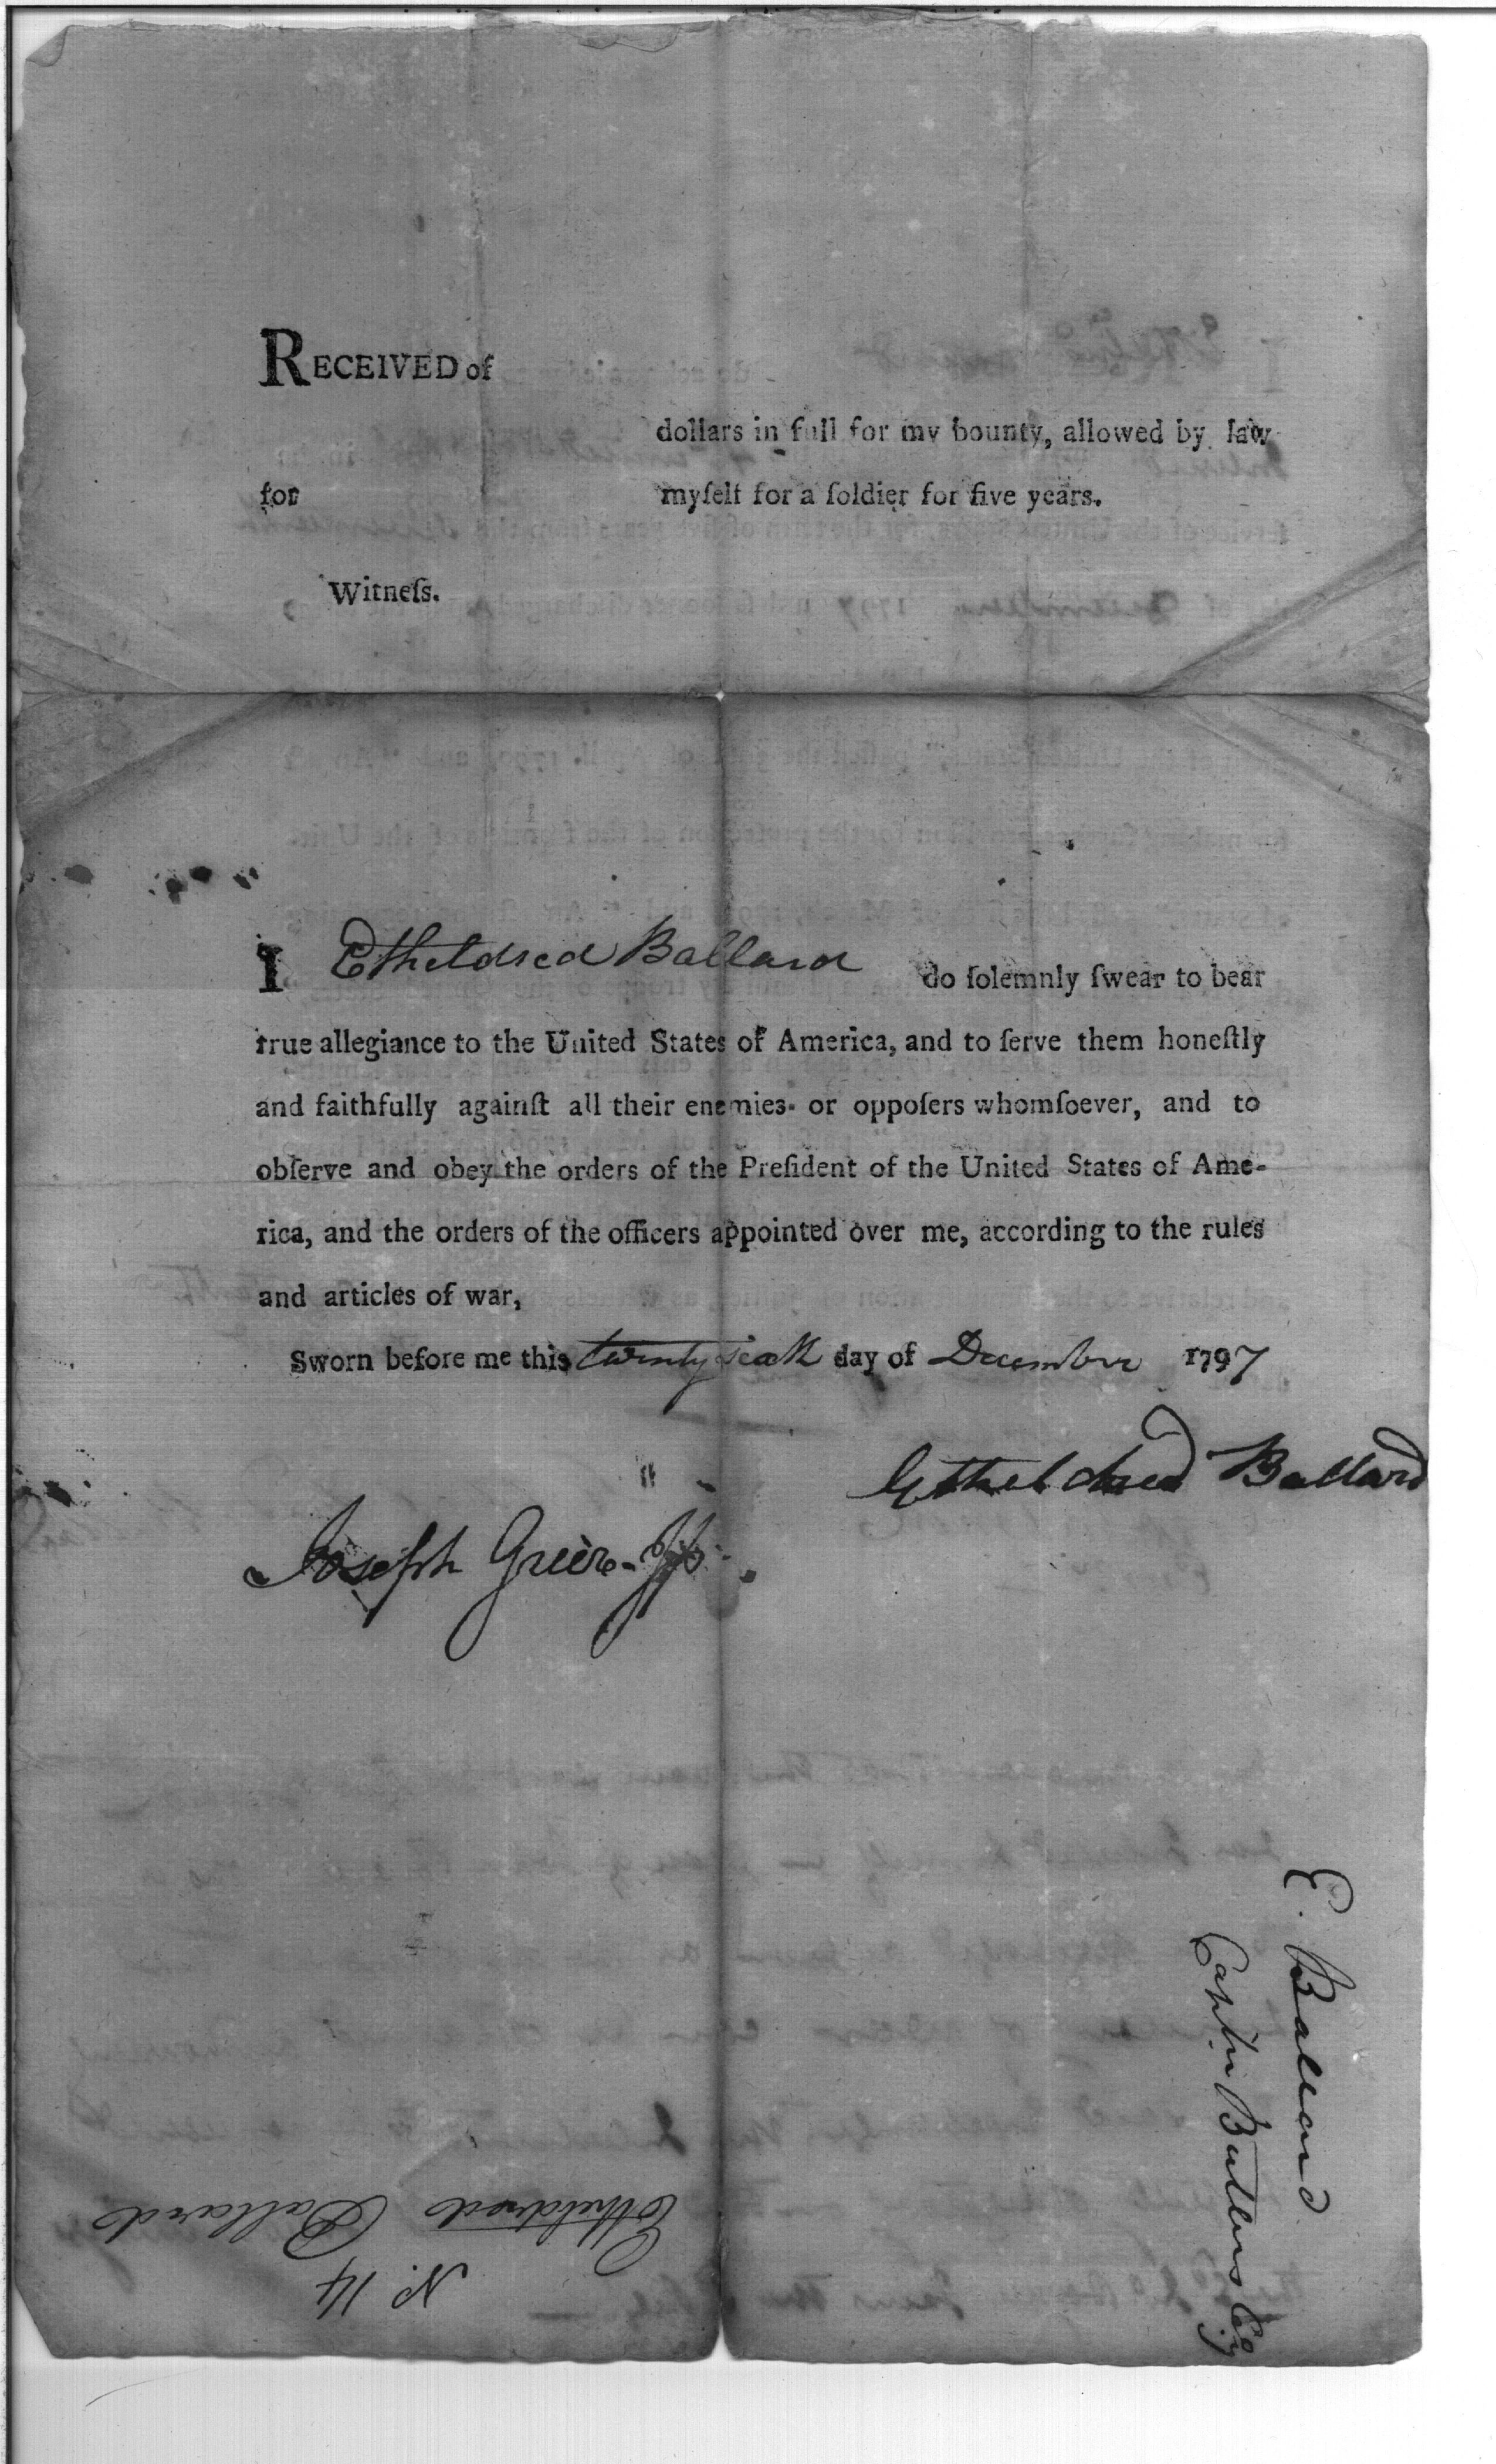 RECEIVED of
dollars in full for my bounty, allowed by law
for myſelf for a ſoldier for five years.
Witneſs.
I Etheldred Ballard do ſolemnly ſwear to bear
true allegiance to the United States of America, and to ſerve them honeſtly
and faithfully againſt all their enemies or oppoſers whomſoever, and to
obſerve and obey the orders of the Preſident of the United States of Ame-
rica, and the orders of the officers appointed over me, according to the rules
and articles of war,
Sworn before me this twenty sixth day of December 1797
Etheldred Ballard
Joseph Greer Jp.
E. Ballard
Captn. Butlers Coy
N. 14
Etheldred Ballard